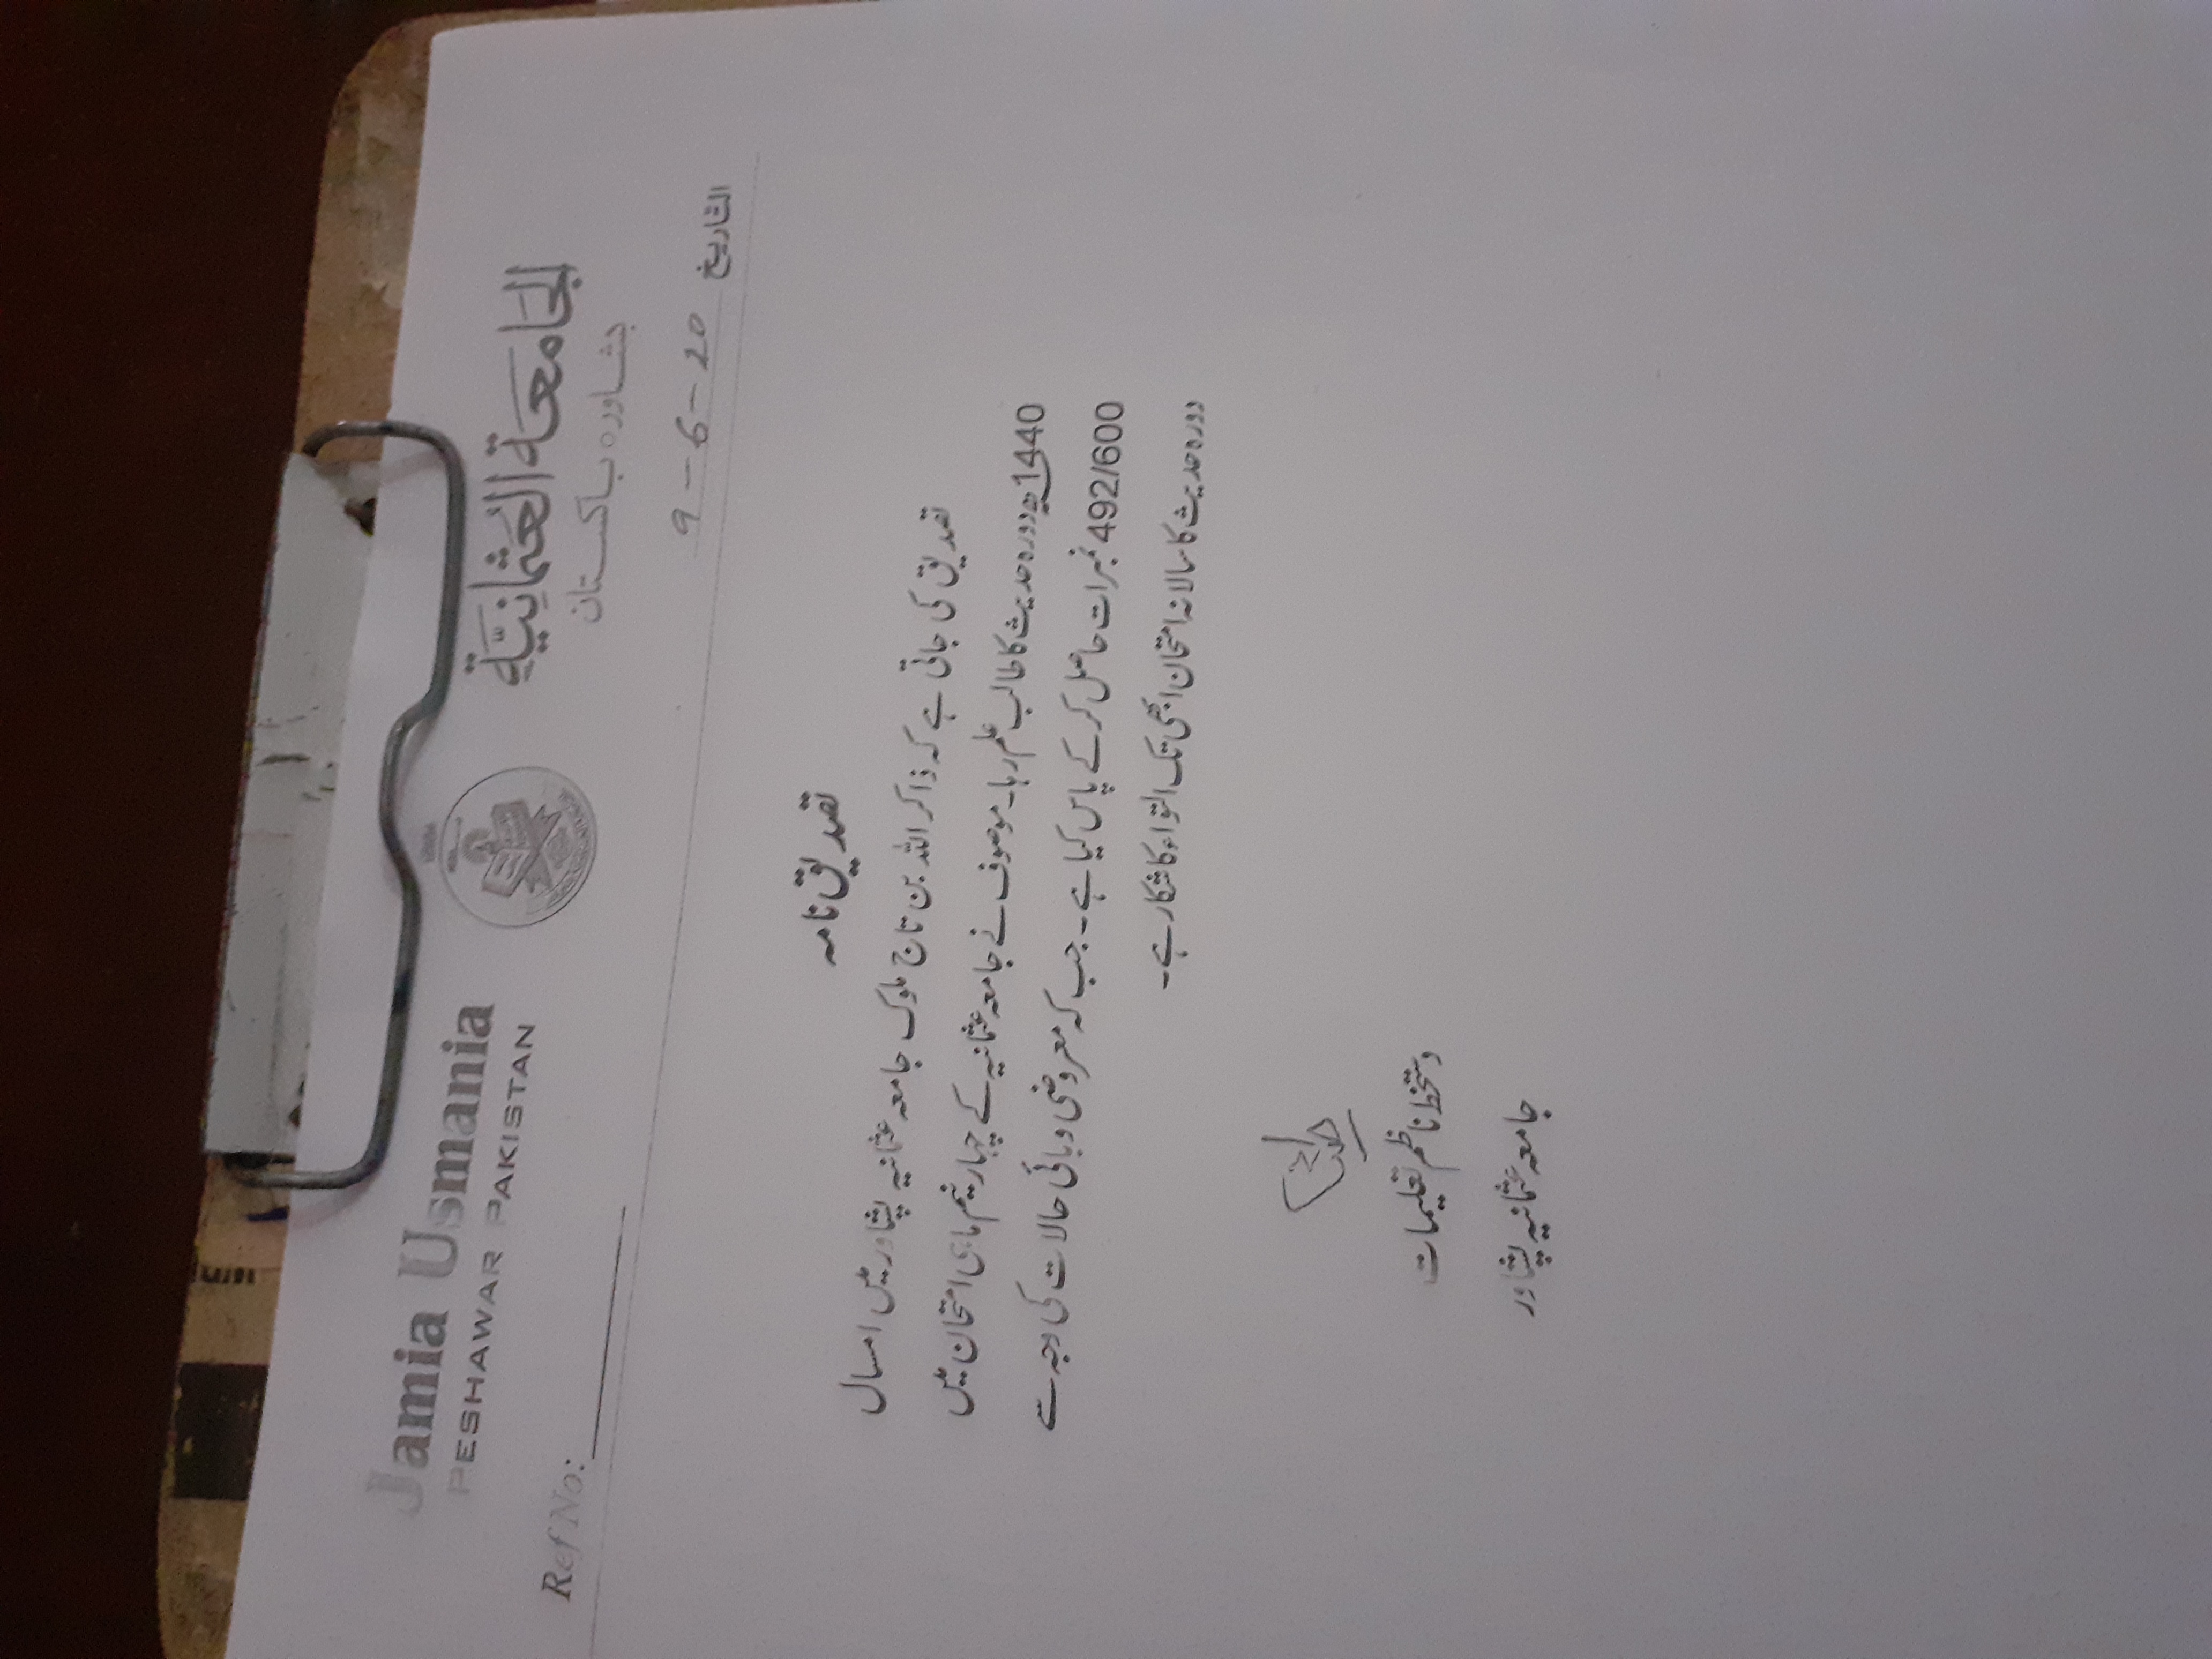 Jamia Usmania
PESHAWAR PAKISTAN
الجَامعَة العُثمانيَّة
بشاوره باکستان
Ref No:
التاریخ 9-6-20
تصدیق نامہ
تصدیق کی جاتی ہے کہ ذاکر اللہ بن تاج ملوک جامعہ عثمانیہ پشاور میں امسال
1440ھ دورہ حدیث کا طالب علم رہا۔ موصوف نے جامعہ عثمانیہ کے چہار نیم ماہی امتحان میں
492/600 نمبرات حاصل کر کے پاس کیا ہے۔ جب کہ معروضی وبائی حالات کی وجہ سے
دورہ حدیث کا سالانہ امتحان ابھی تک التواء کا شکار ہے۔
دستخط ناظم تعلیمات
جامعہ عثمانیہ پشاور